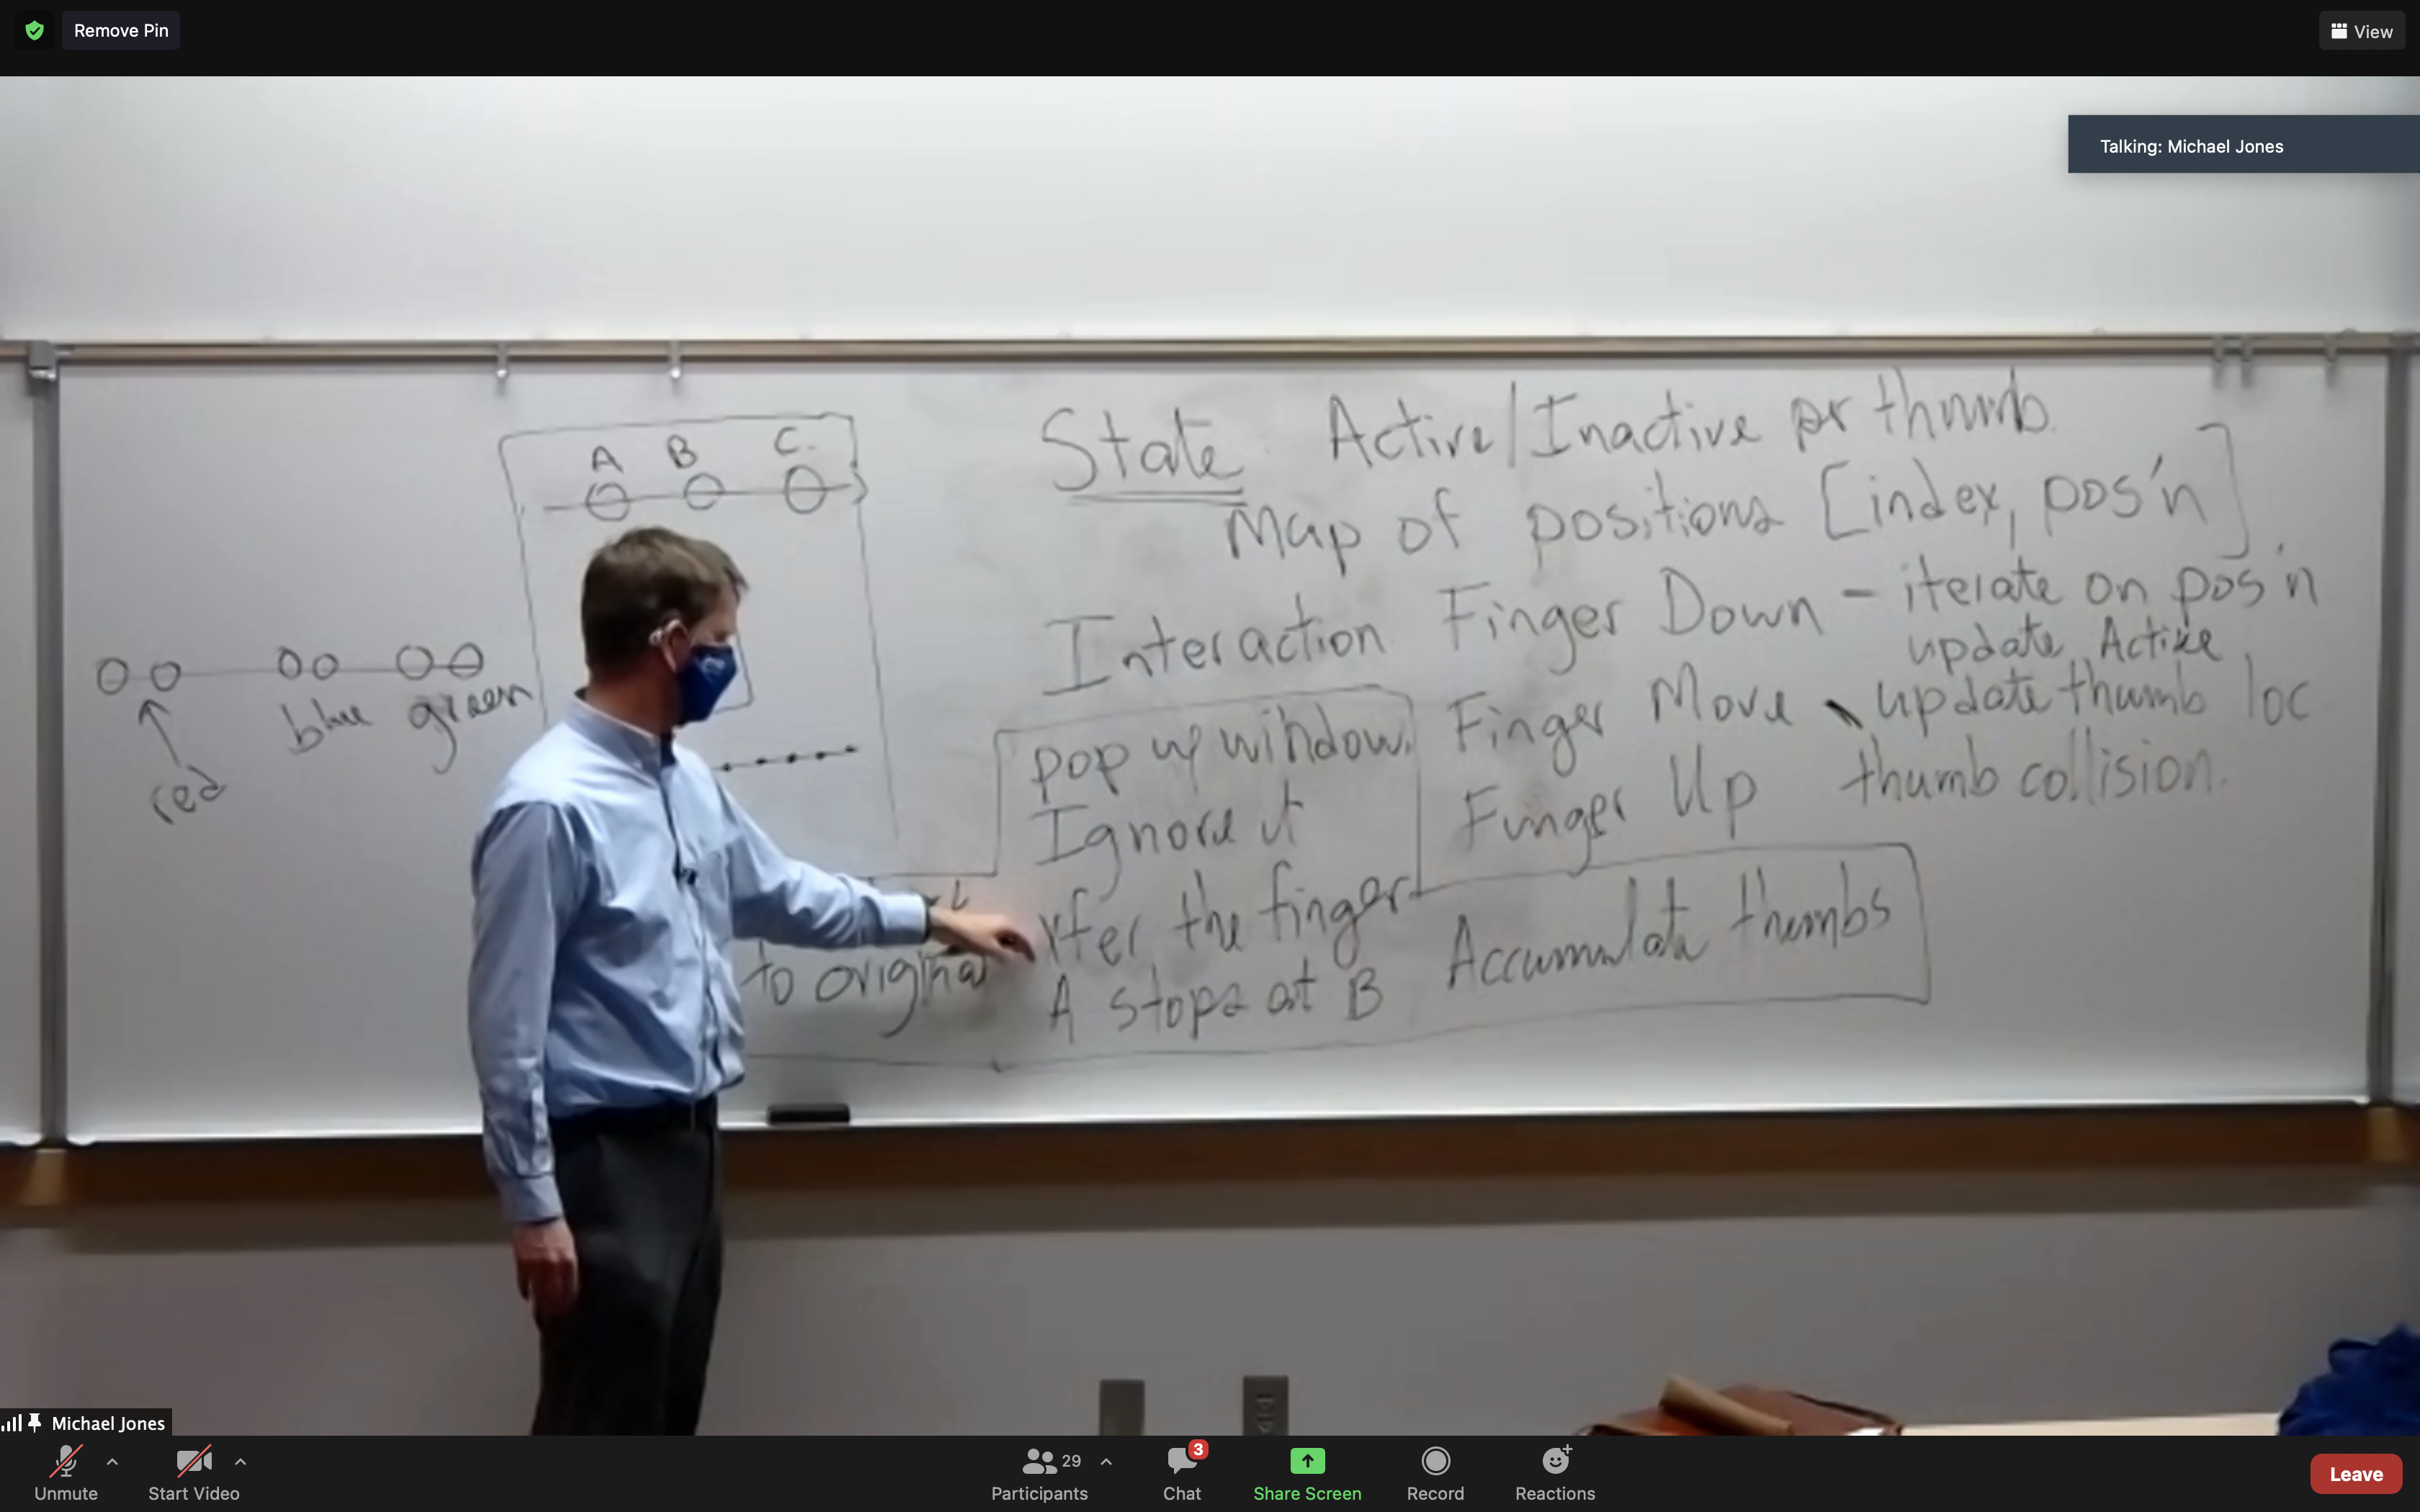 Remove Pin
View
Talking: Michael Jones
A B C
red
blue green
State Active/Inactive per thumb
Map of positions [index, pos'n]
Interaction Finger Down - iterate on pos'n
update Active
Finger Move update thumb loc
Finger Up thumb collision.
pop up window.
Ignore it
the finger
to original
A stops at B
Accumulate thumbs
Michael Jones
Unmute
Start Video
29
Participants
3
Chat
Share Screen
Record
Reactions
Leave